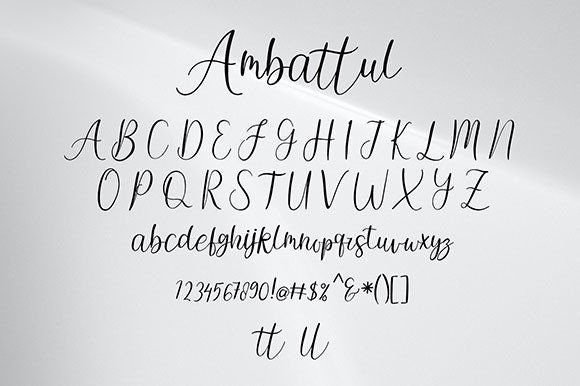 Ambattul
ABCDEFGHIJKLMN
OPQRSTUVWXYZ
abcdefghijklmnopqrstuvwxyz
1234567890!@#$%^&*()[]
tt ll